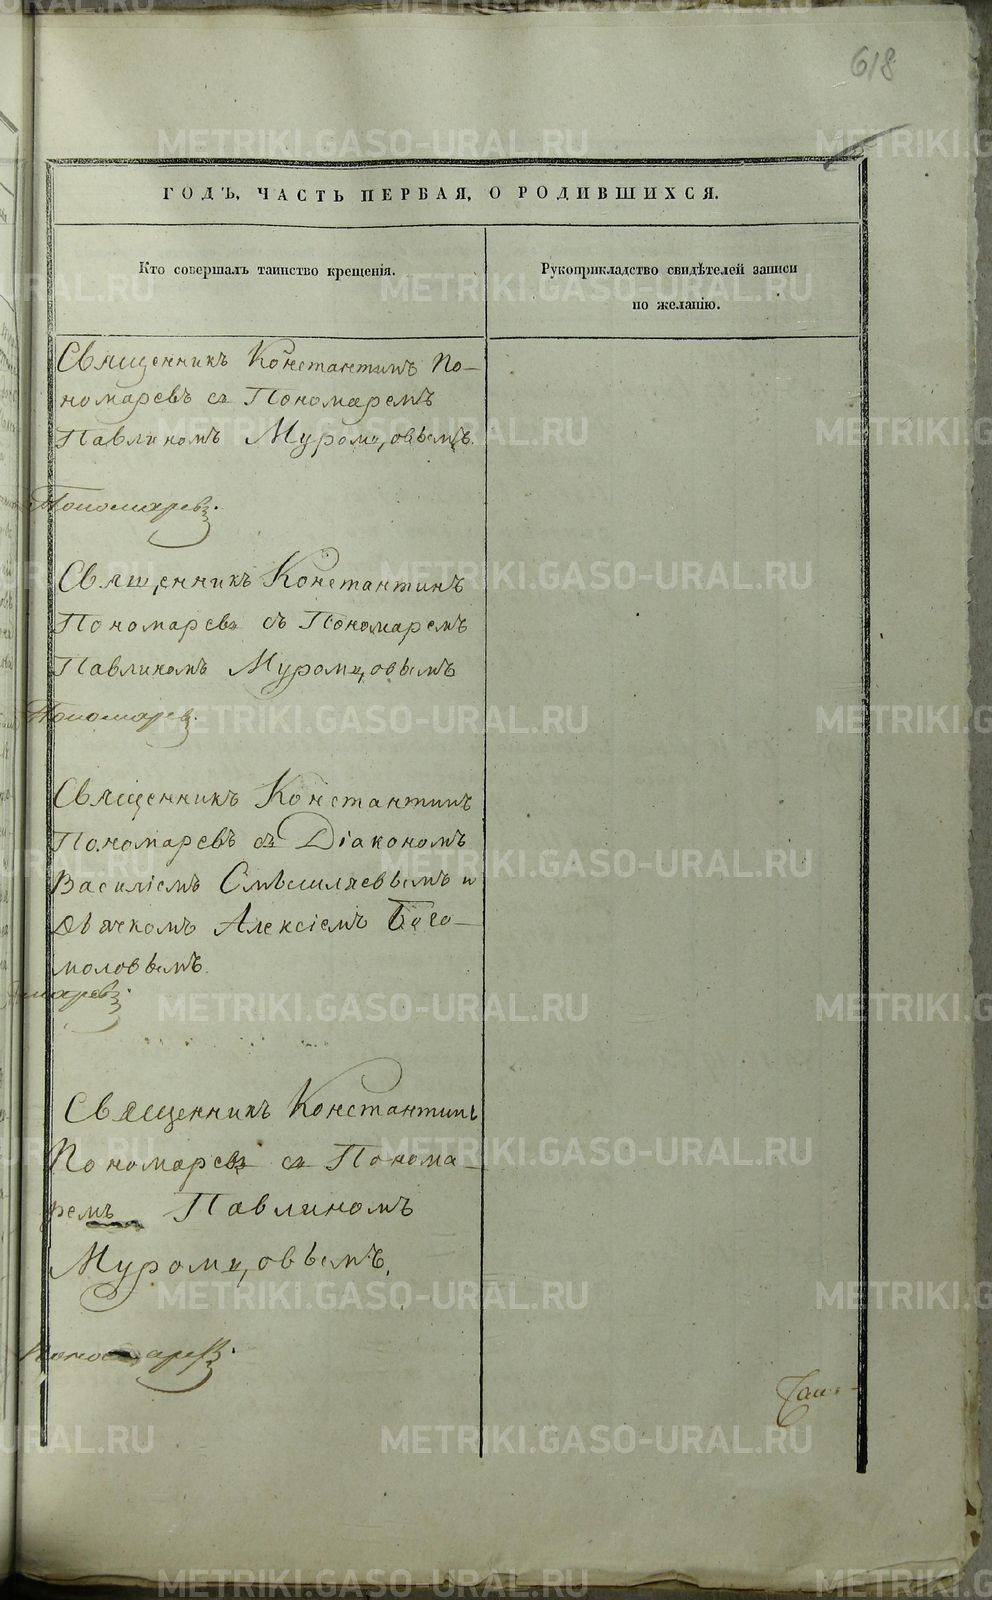 618
ГОДЪ, ЧАСТЬ ПЕРВАЯ, О РОДИВШИХСЯ.
Кто совершалъ таинство крещенія.
Рукоприкладство свидѣтелей записи
по желанію.
Священникъ Константинъ По-
номаревъ съ Пономаремъ
Павлиномъ Муромцовымъ.
Пономаревъ.
Священникъ Константинъ
Пономаревъ съ Пономаремъ
Павлиномъ Муромцовымъ
Пономаревъ.
Священникъ Константинъ
Пономаревъ съ Діакономъ
Василіемъ Смѣшляевымъ и
Дьячкомъ Алексіемъ Бого-
моловымъ.
номаревъ.
Священникъ Константинъ
Пономаревъ съ Понома-
ремъ Павлиномъ
Муромцовымъ.
Пономаревъ.
METRIKI.GASO-URAL.RU